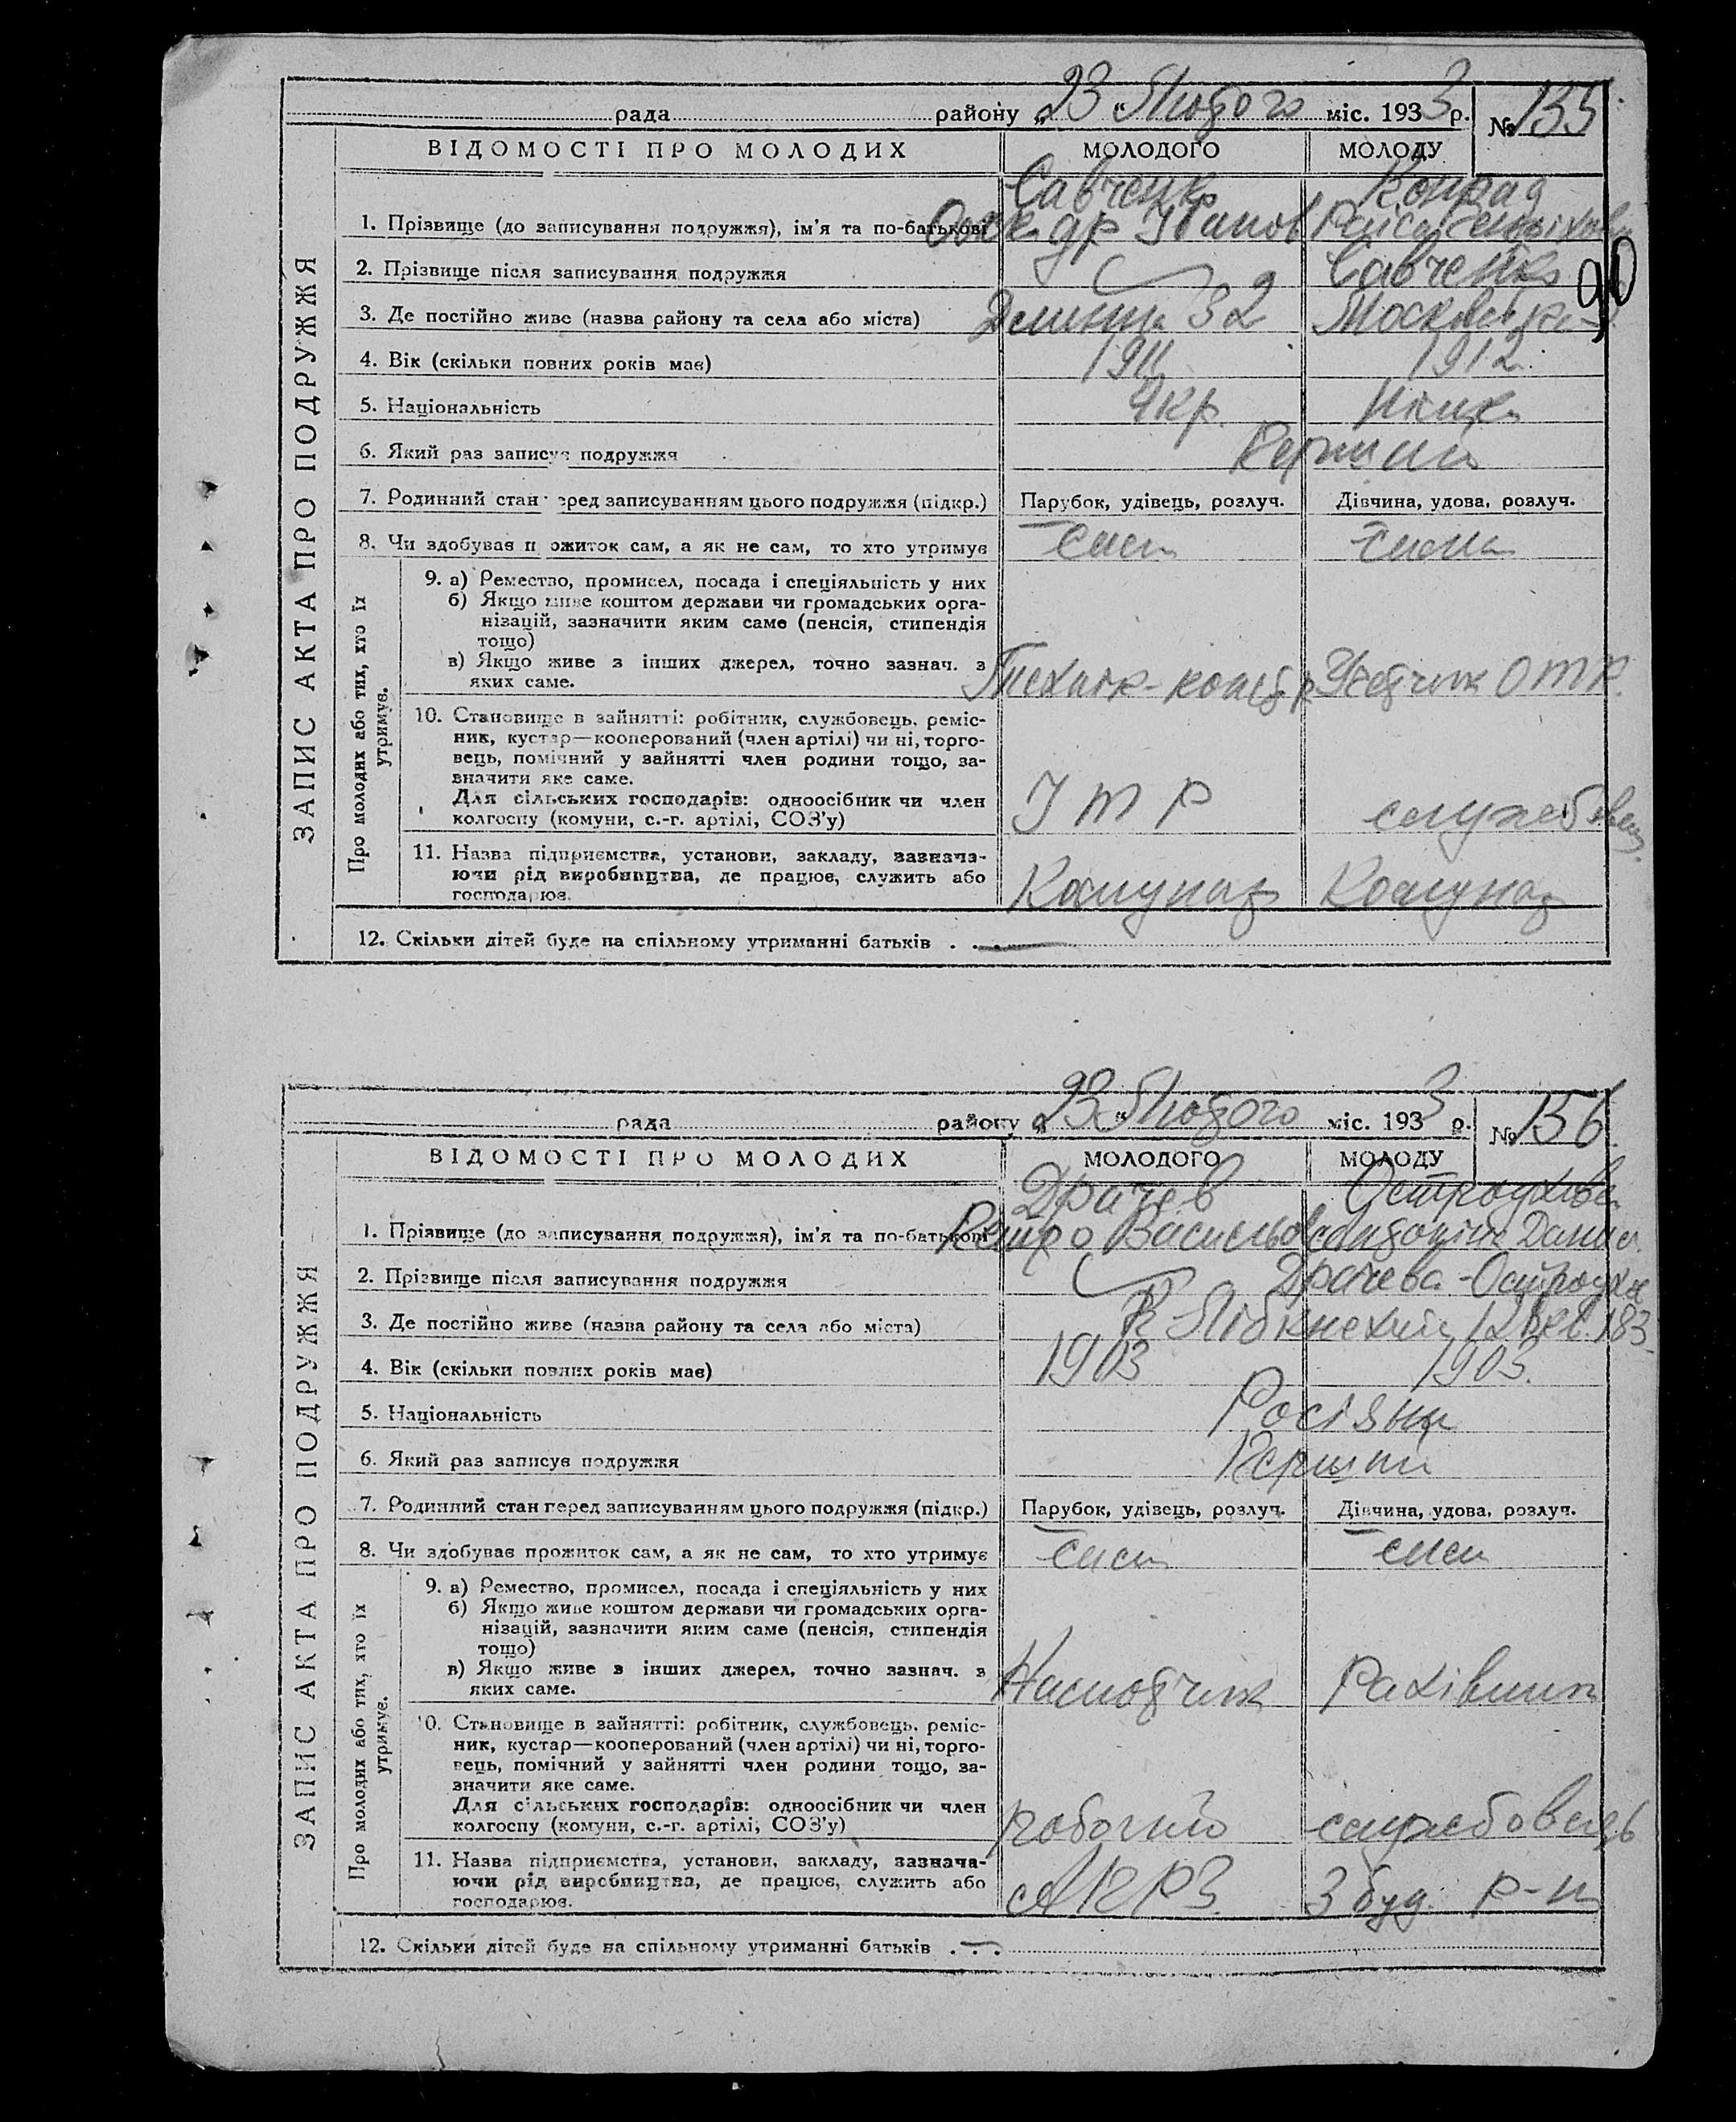 рада района „23 “ Лютого міс. 1933 р. № 155
ВІДОМОСТІ ПРО МОЛОДИХ МОЛОДОГО МОЛОДУ
Савченко Конрад
1. Прізвище (до записування подружжя), ім'я та по-батькові Олександр Іванов Раїса Генріховна
2. Прізвище після записування подружжя Савченко
90
3. Де постійно живе (назва району та села або міста) 32 Московська
4. Вік (скільки повних років має) 1911 1912.
5. Національність Укр. Німка
6. Який раз записує подружжя Перший
7. Родинний стан перед записуванням цього подружжя (підкр.) Парубок, удівець, розлуч. Дівчина, удова, розлуч.
8. Чи здобуває прожиток сам, а як не сам, то хто утримує сам сама
9. а) Ремество, промисел, посада і спеціяльність у них
б) Якщо живе коштом держави чи громадських орга-
нізацій, зазначити яким саме (пенсія, стипендія
тощо)
в) Якщо живе з інших джерел, точно зазнач. з
яких саме. Технік-констр. ОТК.
10. Становище в зайнятті: робітник, службовець, реміс-
ник, кустар—кооперований (член артілі) чи ні, торго-
вець, помічний у зайнятті член родини тощо, за-
значити яке саме.
Для сільських господарів: одноосібник чи член
колгоспу (комуни, с.-г. артілі, СОЗ'у) ІТР службовець.
11. Назва підприємства, установи, закладу, зазнача-
ючи рід виробництва, де працює, служить або
господарює. Комунар Комунар
12. Скільки дітей буде на спільному утриманні батьків . . . —
ЗАПИС АКТА ПРО ПОДРУЖЖЯ
Про молодих або тих, хто їх
утримує.
рада району „23 “ Лютого міс. 1933 р. № 156
ВІДОМОСТІ ПРО МОЛОДИХ МОЛОДОГО МОЛОДУ
Драчев Остроухова
1. Прізвище (до записування подружжя), ім'я та по-батькові Петро Васильов Данил.
2. Прізвище після записування подружжя Драчева-Остроухова
3. Де постійно живе (назва району та села або міста) К Лібкнехта 12 кв. 183
4. Вік (скільки повних років має) 1903 1903.
5. Національність Росіяни
6. Який раз записує подружжя Перший
7. Родинний стан перед записуванням цього подружжя (підкр.) Парубок, удівець, розлуч. Дівчина, удова, розлуч.
8. Чи здобуває прожиток сам, а як не сам, то хто утримує сам сама
9. а) Ремество, промисел, посада і спеціяльність у них
б) Якщо живе коштом держави чи громадських орга-
нізацій, зазначити яким саме (пенсія, стипендія
тощо)
в) Якщо живе з інших джерел, точно зазнач. з
яких саме. Рахівник
10. Становище в зайнятті: робітник, службовець, реміс-
ник, кустар—кооперований (член артілі) чи ні, торго-
вець, помічний у зайнятті член родини тощо, за-
значити яке саме.
Для сільських господарів: одноосібник чи член
колгоспу (комуни, с.-г. артілі, СОЗ'у) робочий службовець
11. Назва підприємства, установи, закладу, зазнача-
ючи рід виробництва, де працює, служить або
господарює. 3 буд. р-н
12. Скільки дітей буде на спільному утриманні батьків . — .
ЗАПИС АКТА ПРО ПОДРУЖЖЯ
Про молодих або тих, хто їх
утримує.